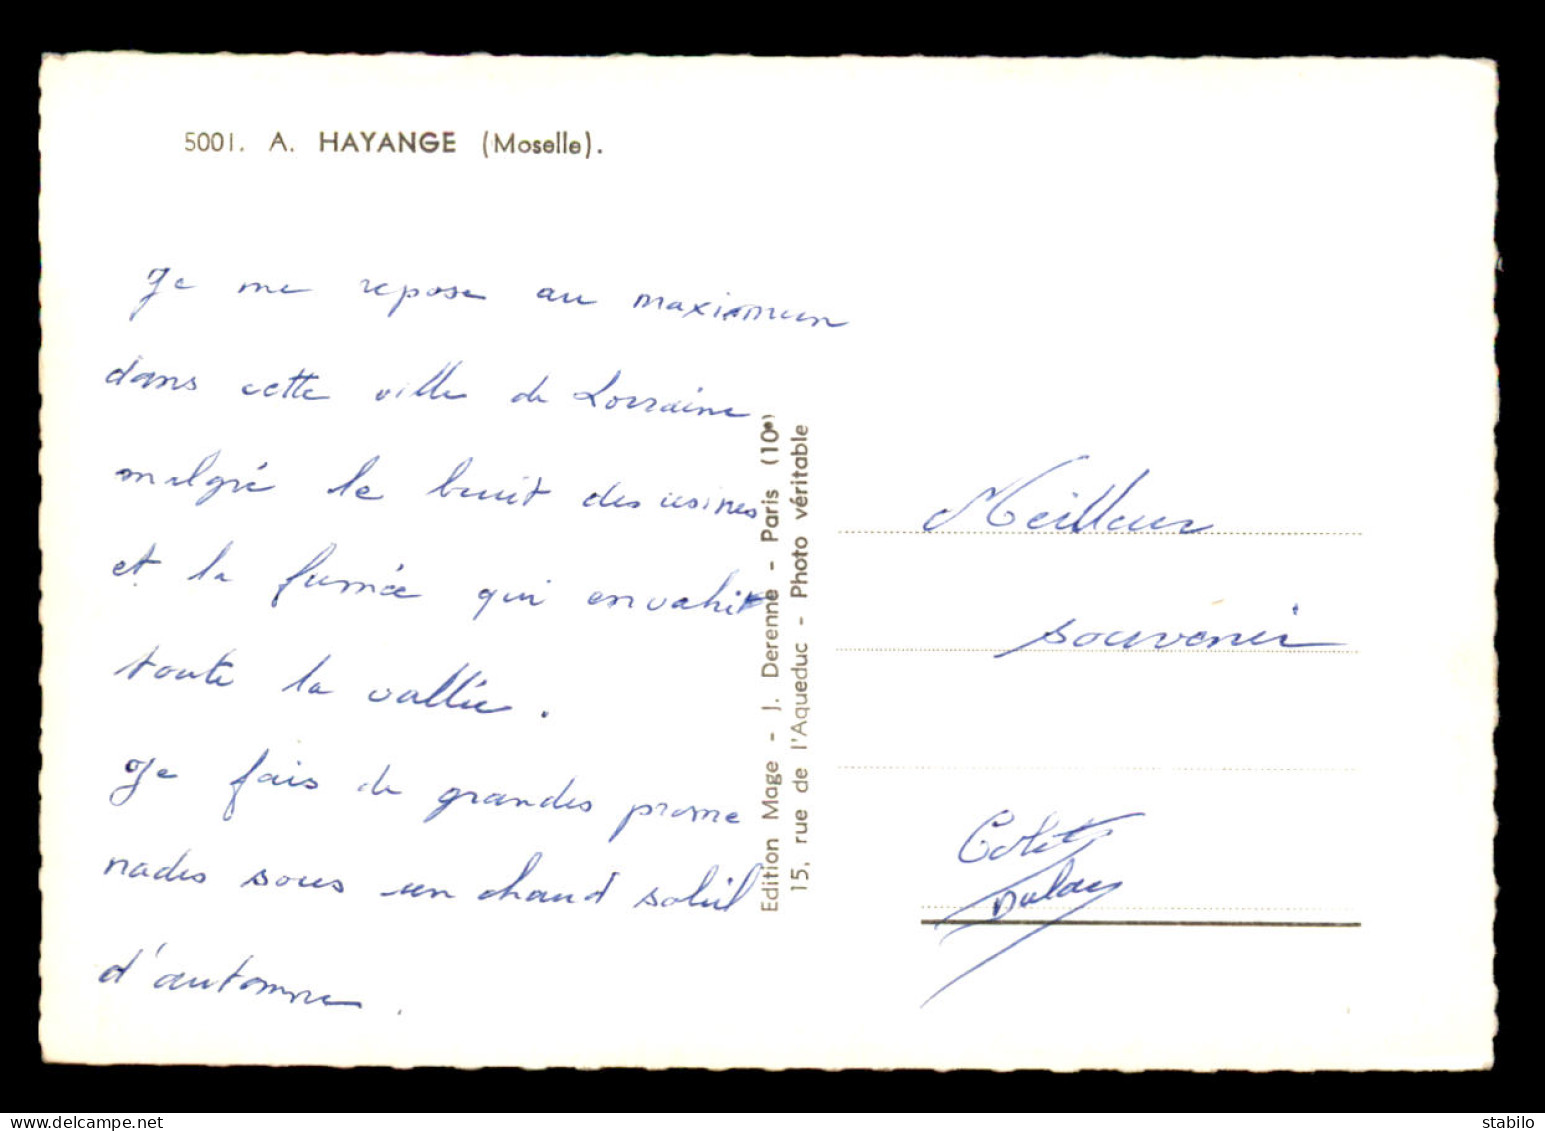 5001. A. HAYANGE (Moselle).
Je me repose au maximum
dans cette ville de Lorraine
malgré le bruit des usines
et la fumée qui envahit
toute la vallée.
Je fais de grandes prome
nades sous un chaud soleil
d'automne.
Edition Mage - J. Derenne - Paris (10e)
15, rue de l'Aqueduc - Photo véritable
Meilleur
souvenir
stabilo